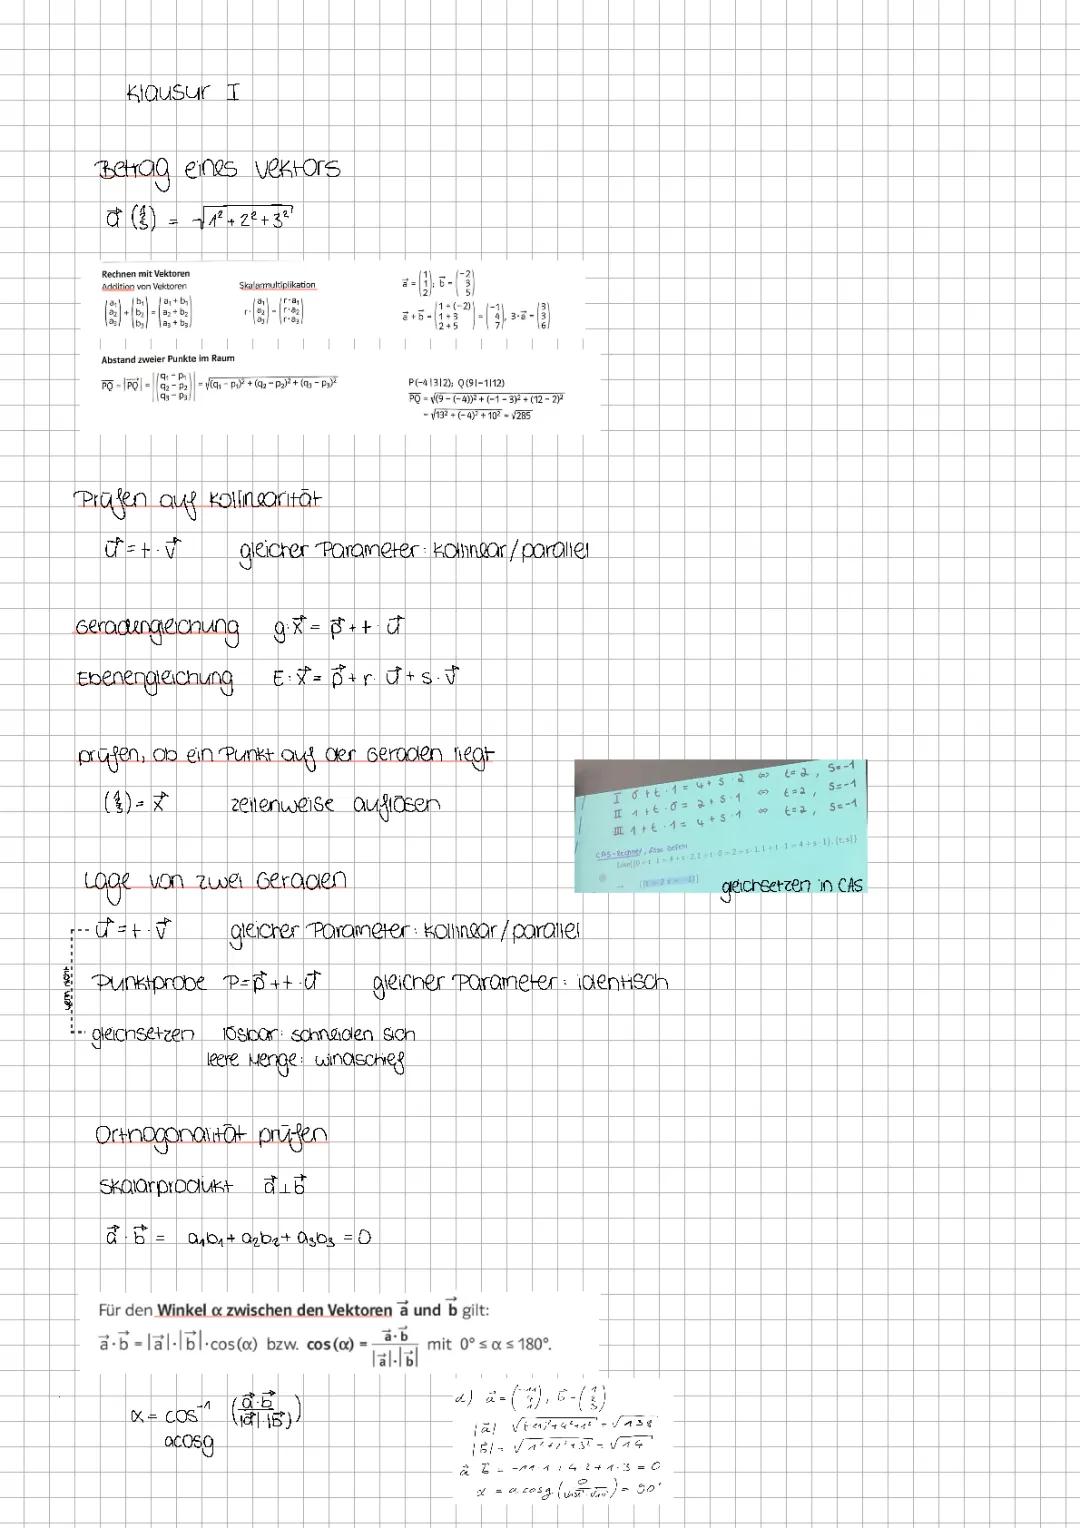 Klausur I
Betrag eines Vektors
a⃗ (1 2 3) = √1² + 2² + 3²
Rechnen mit Vektoren
Addition von Vektoren
Skalarmultiplikation
(a₁ a₂ a₃) + (b₁ b₂ b₃) = (a₁ + b₁ a₂ + b₂ a₃ + b₃)
r · (a₁ a₂ a₃) = (r·a₁ r·a₂ r·a₃)
a⃗ = (1 1 2); b⃗ = (-2 3 5)
a⃗ + b⃗ = (1 + (-2) 1 + 3 2 + 5) = (-1 4 7), 3·a⃗ = (3 3 6)
Abstand zweier Punkte im Raum
PQ = |PQ⃗| = |(q₁ - p₁ q₂ - p₂ q₃ - p₃)| = √(q₁ - p₁)² + (q₂ - p₂)² + (q₃ - p₃)²
P(-4|3|2); Q(9|-1|12)
PQ = √(9 - (-4))² + (-1 - 3)² + (12 - 2)²
= √13² + (-4)² + 10² = √285
Prüfen auf Kollinearität
u⃗ = t · v⃗ gleicher Parameter: kollinear/parallel
Geradengleichung g: x⃗ = p⃗ + t · u⃗
Ebenengleichung E: x⃗ = p⃗ + r · u⃗ + s · v⃗
prüfen, ob ein Punkt auf der Geraden liegt
(1 2 3) = x⃗ zeilenweise auflösen
I 0 + t · 1 = 4 + s · 2 ⇔ t = 2, s = -1
II 1 + t · 0 = 2 + s · 1 ⇔ t = 2, s = -1
III 1 + t · 1 = 4 + s · 1 ⇔ t = 2, s = -1
CAS-Rechner,
gleichsetzen in CAS
Lage von zwei Geraden
u⃗ = t · v⃗ gleicher Parameter: kollinear/parallel
wenn nicht
Punktprobe P = p⃗ + t · u⃗ gleicher Parameter: identisch
gleichsetzen lösbar: schneiden sich
leere Menge: windschief
Orthogonalität prüfen
Skalarprodukt a⃗ ⊥ b⃗
a⃗ · b⃗ = a₁b₁ + a₂b₂ + a₃b₃ = 0
Für den Winkel α zwischen den Vektoren a⃗ und b⃗ gilt:
a⃗ · b⃗ = |a⃗| · |b⃗| · cos(α) bzw. cos(α) = a⃗·b⃗ / |a⃗|·|b⃗| mit 0° ≤ α ≤ 180°.
α = cos⁻¹ (a⃗·b⃗ / |a⃗| |b⃗|)
acosg
d) a⃗ = (-11 4 1), b⃗ = (1 2 3)
|a⃗| √(-11)² + 4² + 1² = √138
|b⃗| = √1² + 2² + 3² = √14
a⃗ b⃗ = -11 · 1 + 4 · 2 + 1 · 3 = 0
α = acosg (0 / √138 · √14) = 90°